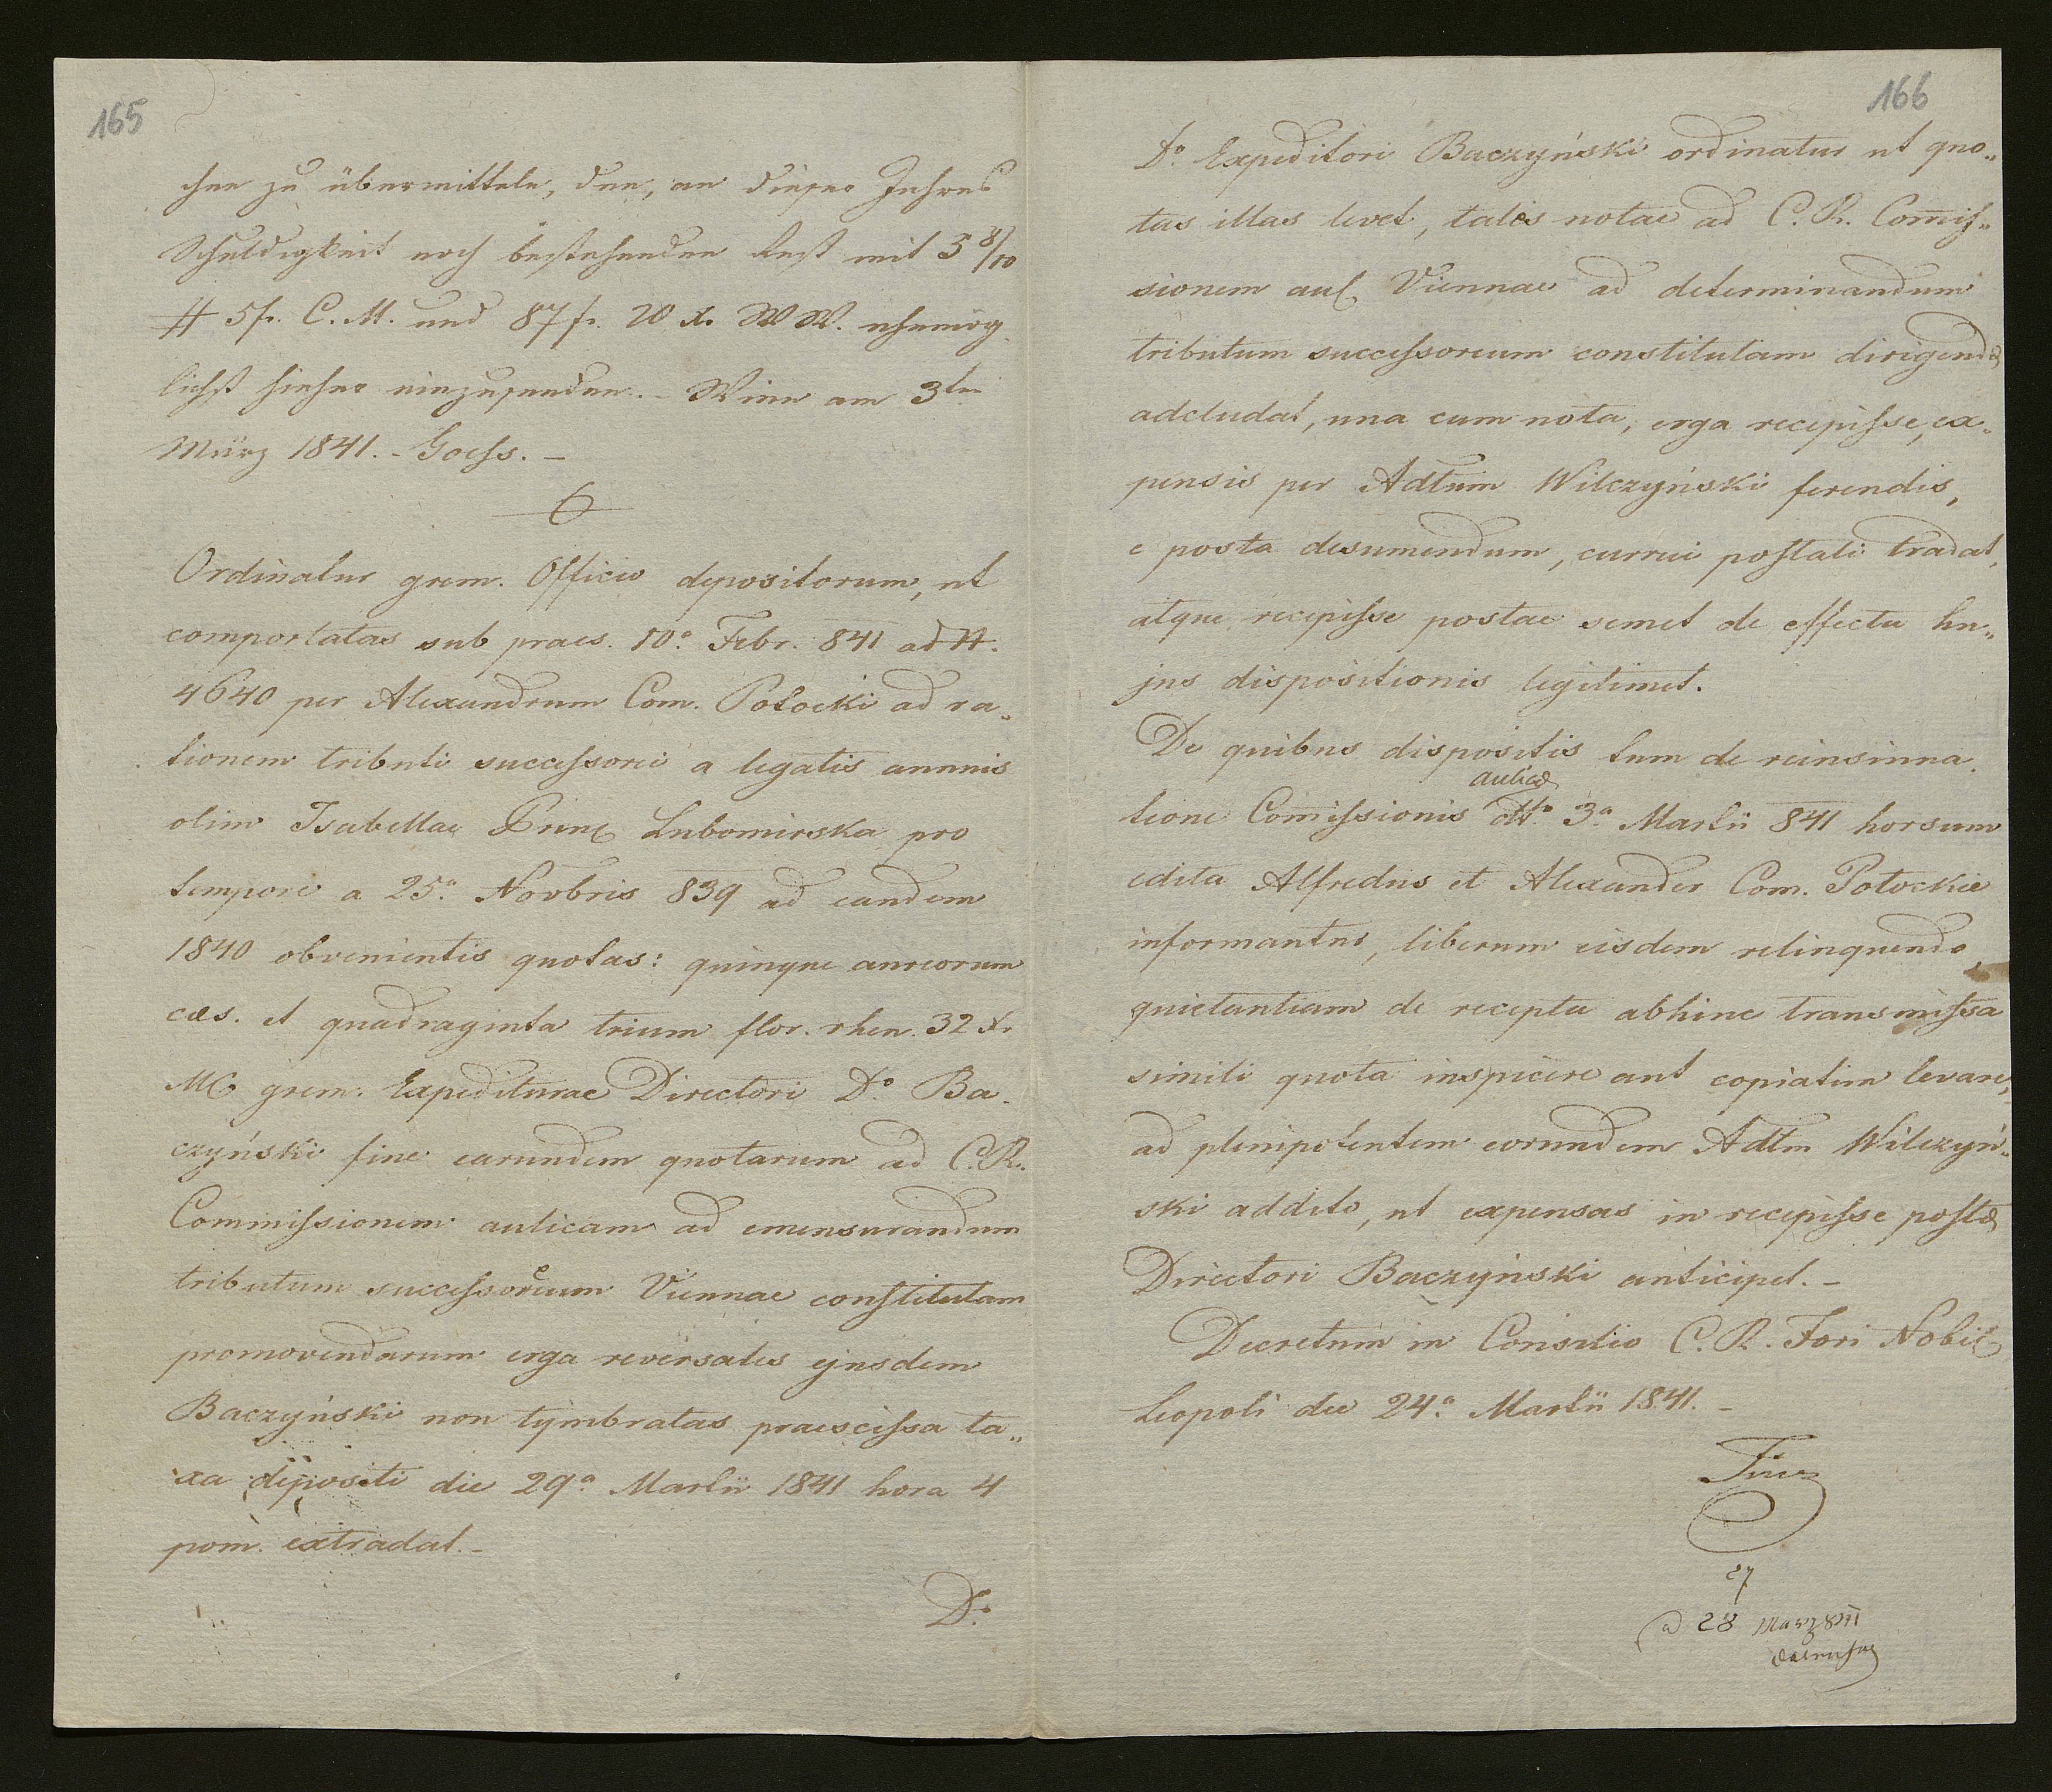 165
chen zu übermitteln, den, an dieser Jahres
Schuldigkeit noch bestehenden Rest mit 3 8/10
# 5 fr. C. M. und 87 fr. 20 x. W W. ehemög
lichst hieher einzusenden. - Wien am 3ten
März 1841. - Goess. -
Ordinatur grem. Officio depositorum, ut
comportatas sub praes. 10a Febr. 841 ad N.
4640 per Alexandrum Com. Potocki ad ra„
tionem tributi successorei a legatis annuis
olim Isabellae Princ Lubomirska pro
tempore a 25a Novbris 839 ad eandem
1840 obvenientis quotas: quinque aureorum
caes. et quadraginta trium flor. rhen. 32 xr
MC grem. Expediturae Directori Do Ba-
czyński fine earundem quotarum ad C. R.
Commissionem aulicam ad emensurandum
tributum successoreum Viennae constitutam
promovendarum erga reversales ejusdem
Baczyński non tymbratas praescissa ta„
xa depositi die 29a Martii 1841 hora 4
pom. extradat. -
Do
166
Do Expeditori Baczyński ordinatur ut quo„
tas illas levet, tales notae ad C. R. Comis„
sionem aul. Viennae ad determinandum
tributum successoreum constitutam dirigendae
adcludat, una cum nota, erga recepisse, ex„
pensis per Adtum Wilczyński ferendis,
e posta desumendum, currui postali tradat,
atque recepisse postae semet de effectu hu„
jus dispositionis legitimet.
De quibus dispositis tum de reinsinua
tione Comissionis aulicae dto 3a Martii 841 horsum
edita Alfredus et Alexander Com. Potockie
informantur, liberum eisdem relinquendo
quietantiam de recepta abhinc transmissa
simili quota inspicere aut copiatim levare,
ad plenipotentem eorundem Adtm Wilczyń„
ski addito, ut expensas in recepisse postae
Directori Baczyński anticipet. -
Decretum in Consilio C. R. Fori Nobil
Leopoli die 24a Martii 1841. -
27
28 Marz 841